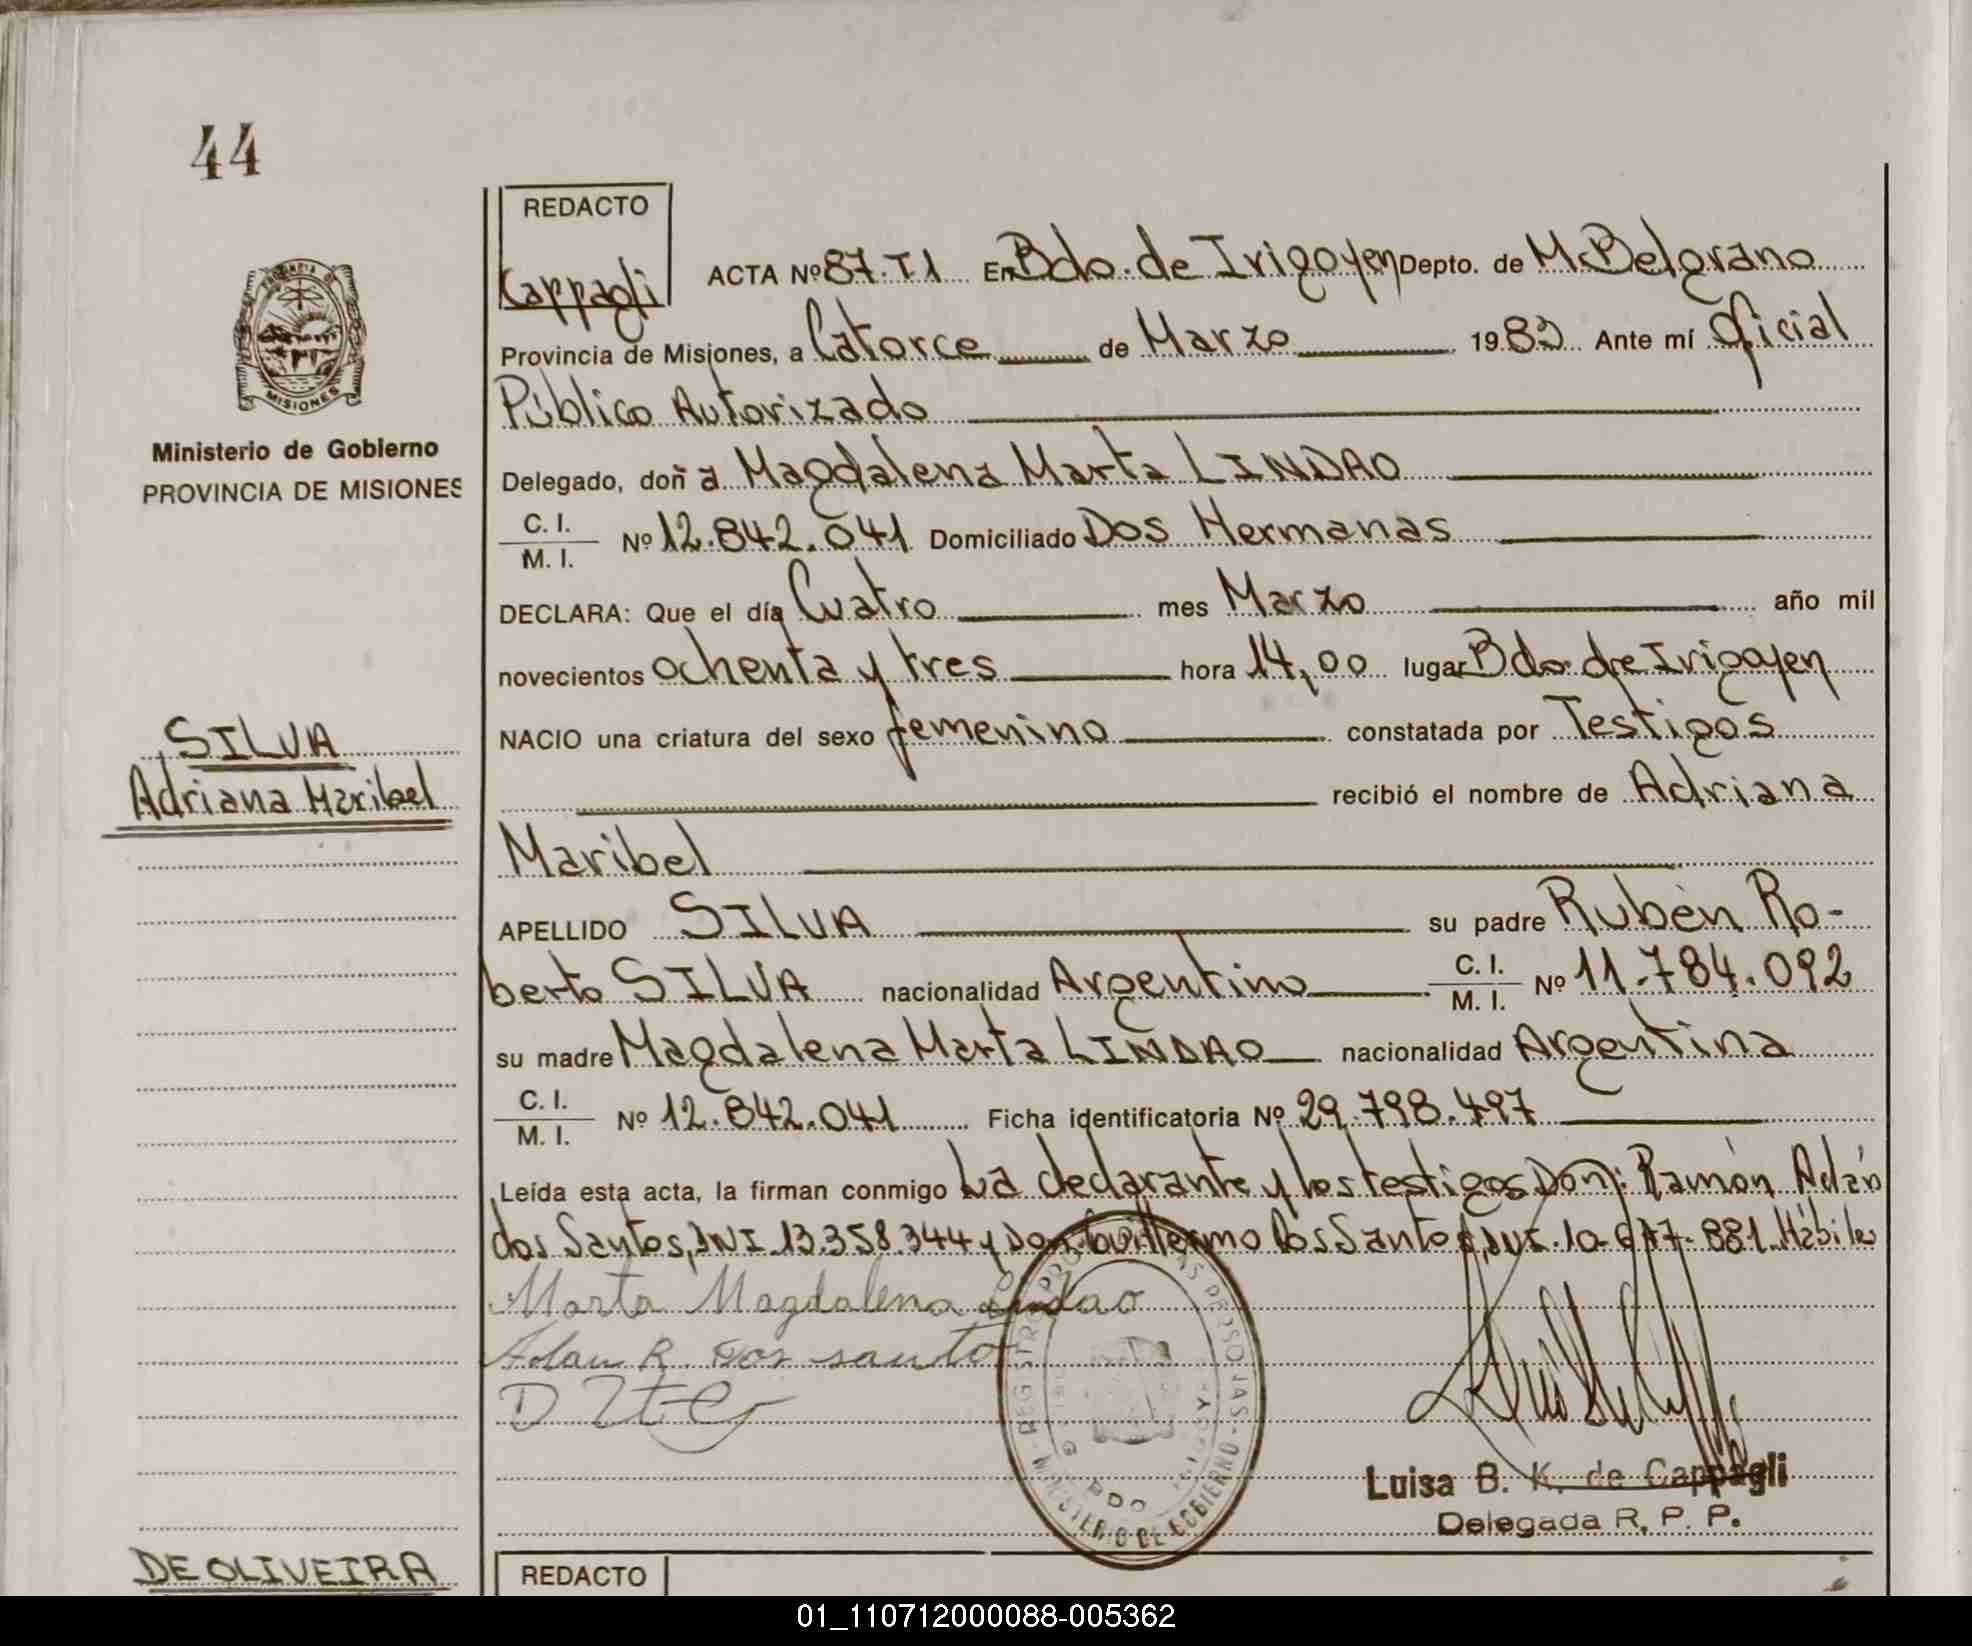 44
REDACTO
Cappagli
ACTA Nº 87.T1 En Bdo. de Irigoyen Depto. de M. Belgrano
Provincia de Misiones, a Catorce de Marzo 1983 Ante mí Oficial
Público Autorizado
Delegado, doña Magdalena Marta LINDAO
C. I.
M. I. Nº 12.842.041 Domiciliado Dos Hermanas
DECLARA: Que el día Cuatro mes Marzo año mil
novecientos ochenta y tres hora 14,00 lugar Bdo. de Irigoyen
NACIO una criatura del sexo femenino constatada por Testigos
recibió el nombre de Adriana
Maribel
APELLIDO SILVA su padre Rubén Ro-
berto SILVA nacionalidad Argentino C. I. M. I. Nº 11.784.092
su madre Magdalena Marta LINDAO nacionalidad Argentina
C. I.
M. I. Nº 12.842.041 Ficha identificatoria Nº 29.798.497
Leída esta acta, la firman conmigo La declarante y los testigos Don: Ramón Adán
dos Santos, DNI. 13.358.344 y Don Guillermo Dos Santos, DNI. 10.677.881 Hábiles
Marta Magdalena Lindao
Adan R. Dos santo
Luisa B. K. de Cappagli
Delegada R. P. P.
PROVINCIA DE
MISIONES
Ministerio de Gobierno
PROVINCIA DE MISIONES
SILVA
Adriana Maribel
DE OLIVEIRA
REDACTO
MINISTERIO DE GOBIERNO
01_110712000088-005362